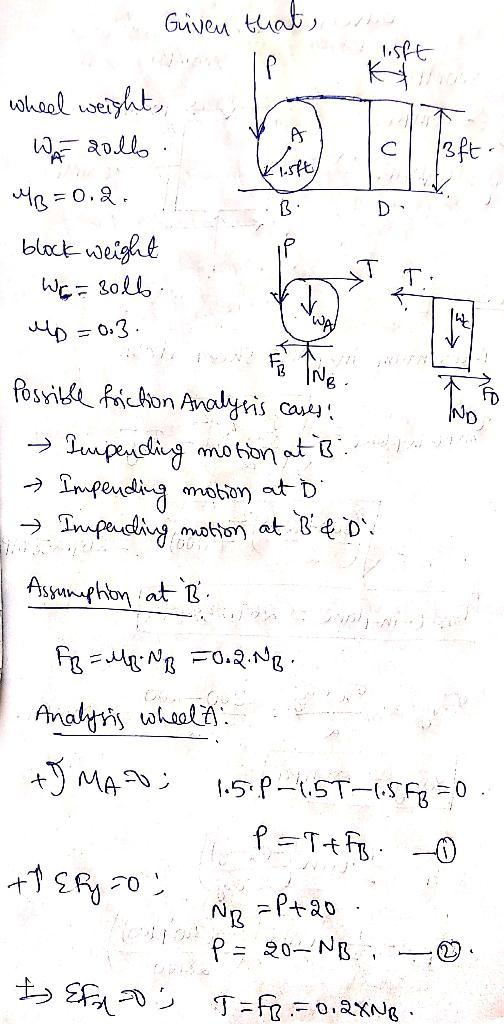 Given that,
P
1.5ft
wheel weight,
W_A = 20lb.
A
C
3ft.
1.5ft
μ_B = 0.2.
B.
D.
block weight
P
T
T.
W_C = 30lb.
W_A
W_C
μ_D = 0.3.
F_B
N_B.
F_D
N_D
Possible friction Analysis cases:
→ Impending motion at 'B'.
→ Impending motion at 'D'
→ Impending motion at 'B' & 'D'.
Assumption at 'B'.
F_B = μ_B·N_B = 0.2·N_B.
Analysis wheel 'A':
+↺ M_A = 0; 1.5·P – 1.5T – 1.5 F_B = 0.
P = T + F_B. —①
+↑ ΣFy = 0; N_B = P + 20.
P = 20 – N_B. —②.
+→ ΣFx = 0; T = F_B = 0.2×N_B.